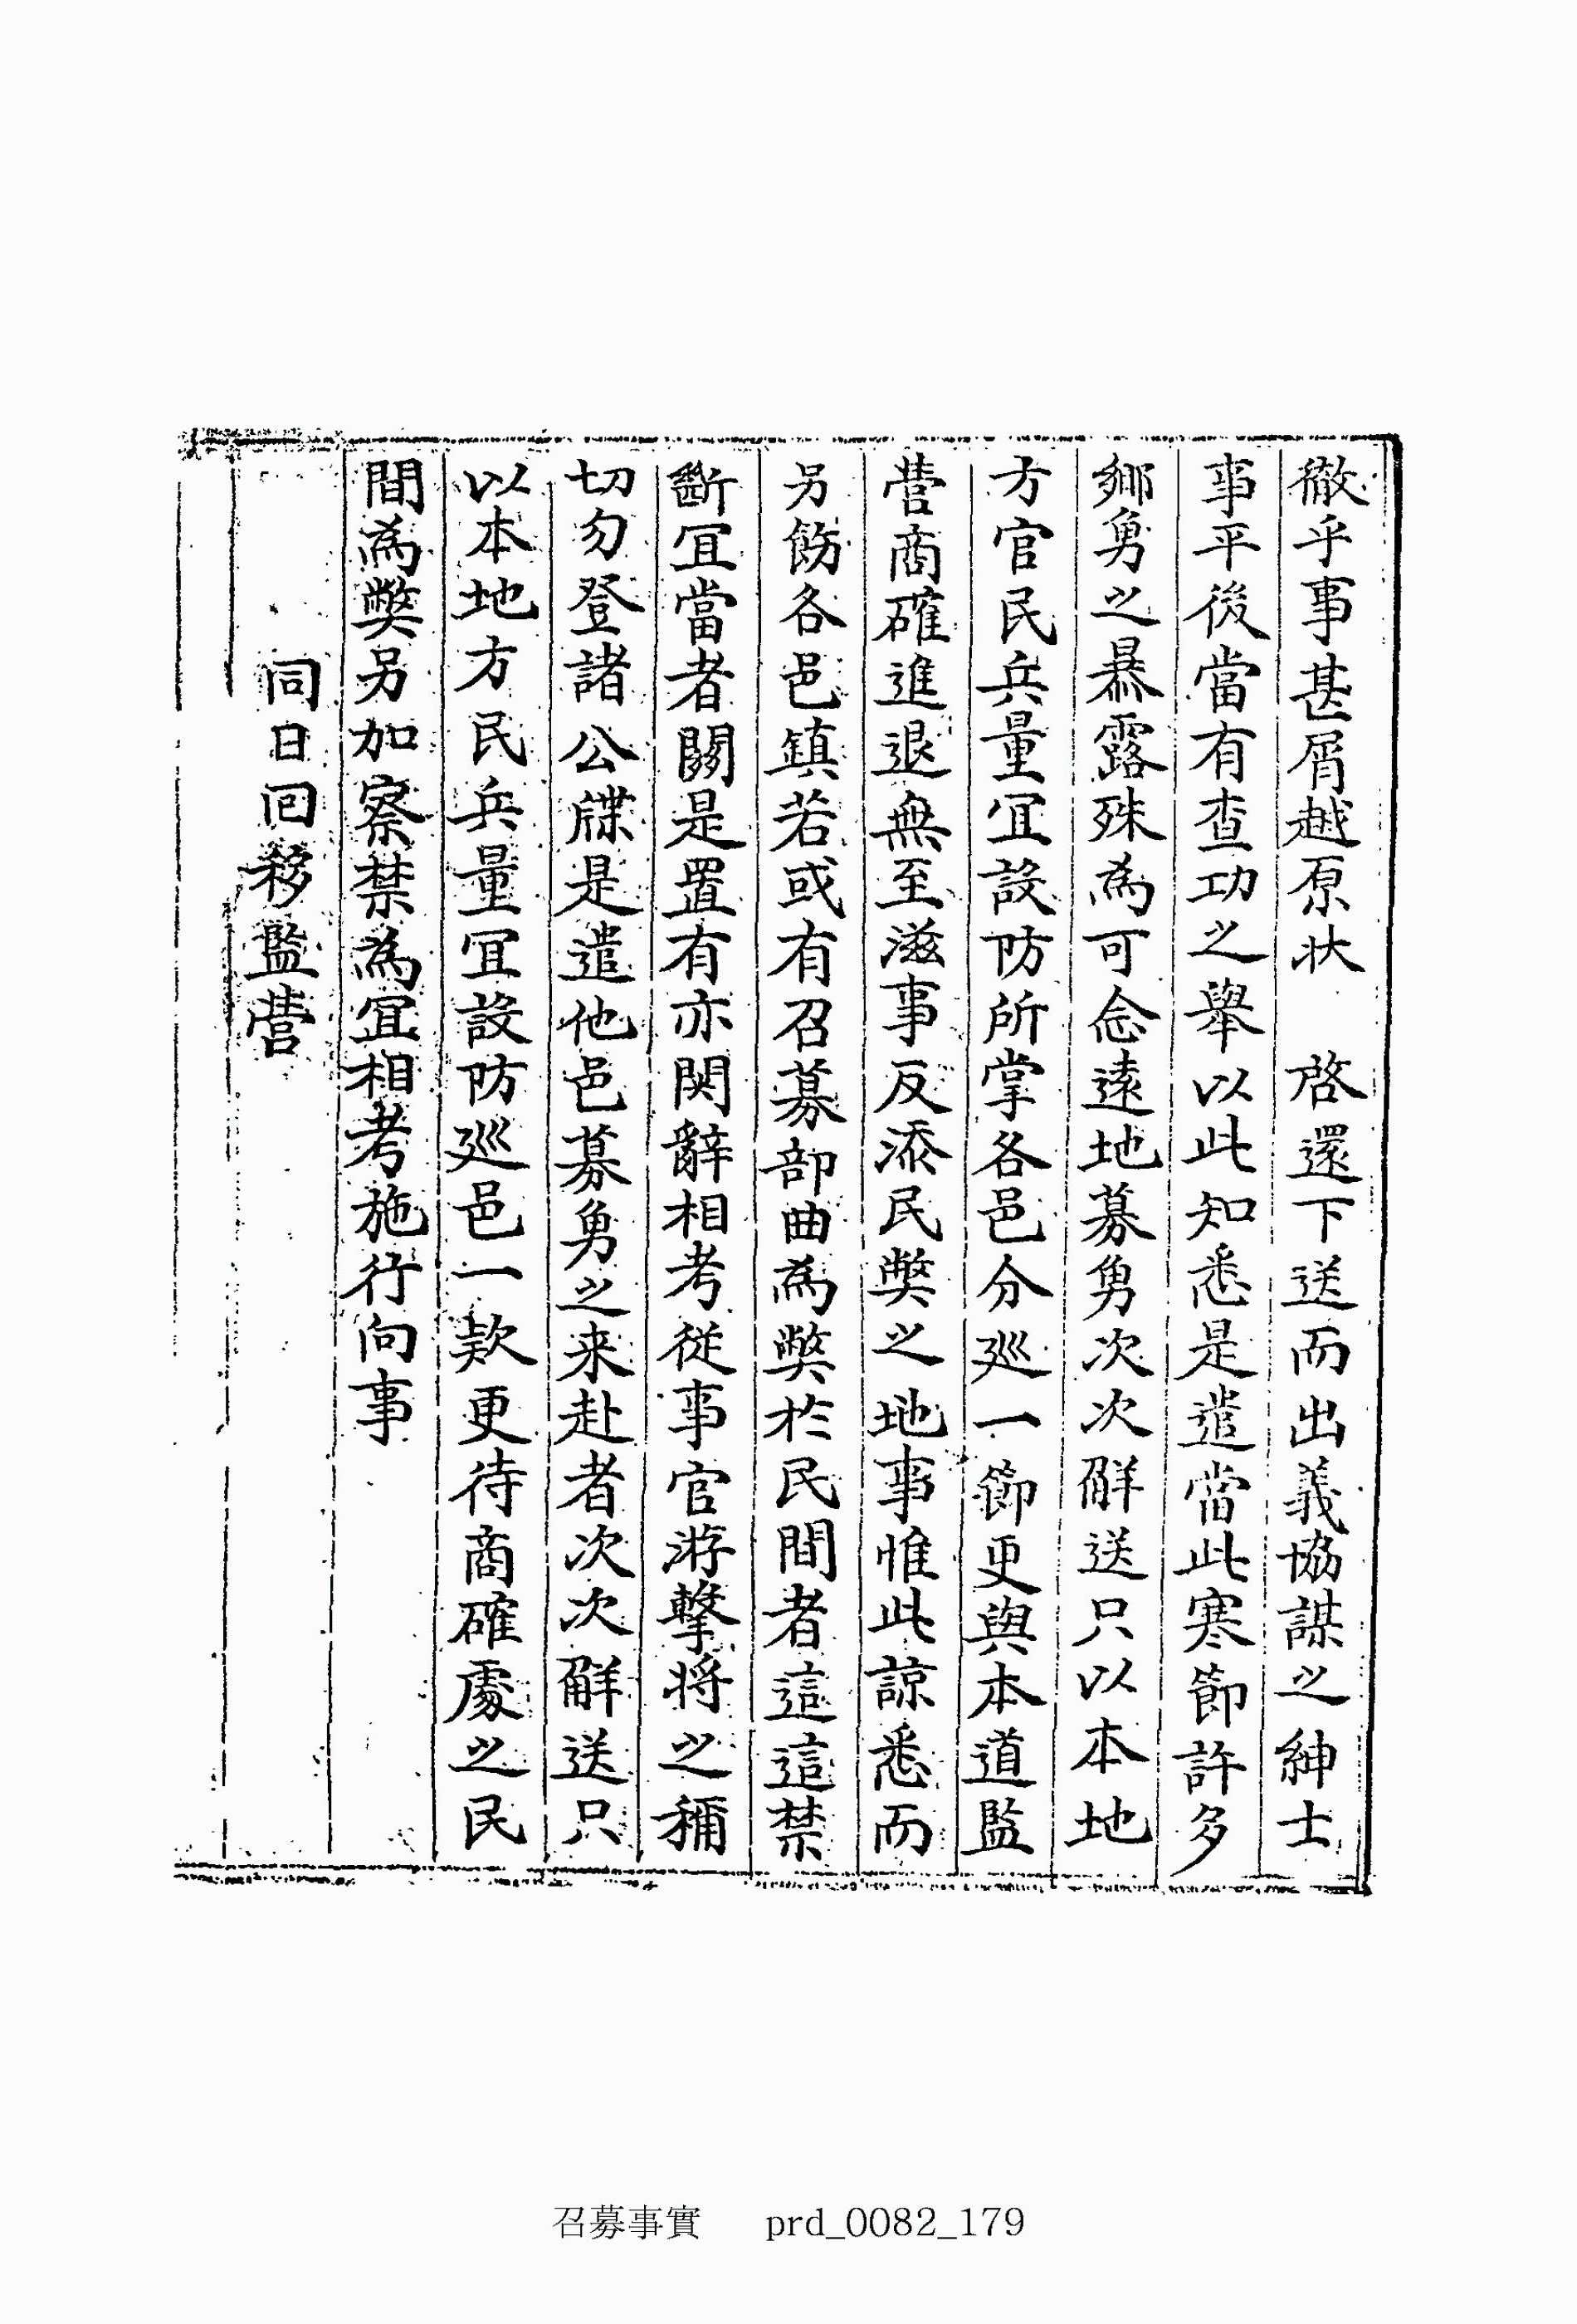 徹乎事甚屑越原狀　啓還下送而出義協謀之紳士
事平後當有查功之擧以此知悉是遣當此寒節許多
鄉勇之暴露殊為可念遠地募勇次次解送只以本地
方官民兵量宜設防所掌各邑分巡一節更與本道監
營商確進退無至滋事反添民弊之地事惟此諒悉而
另飭各邑鎮若或有召募部曲為弊於民間者這這禁
斷宜當者關是置有亦関辭相考從事官游擊將之稱
切勿登諸公牒是遣他邑募勇之来赴者次次解送只
以本地方民兵量宜設防巡邑一款更待商確處之民
間為弊另加察禁為宜相考施行向事
同日回移監營
召募事實　prd_0082_179